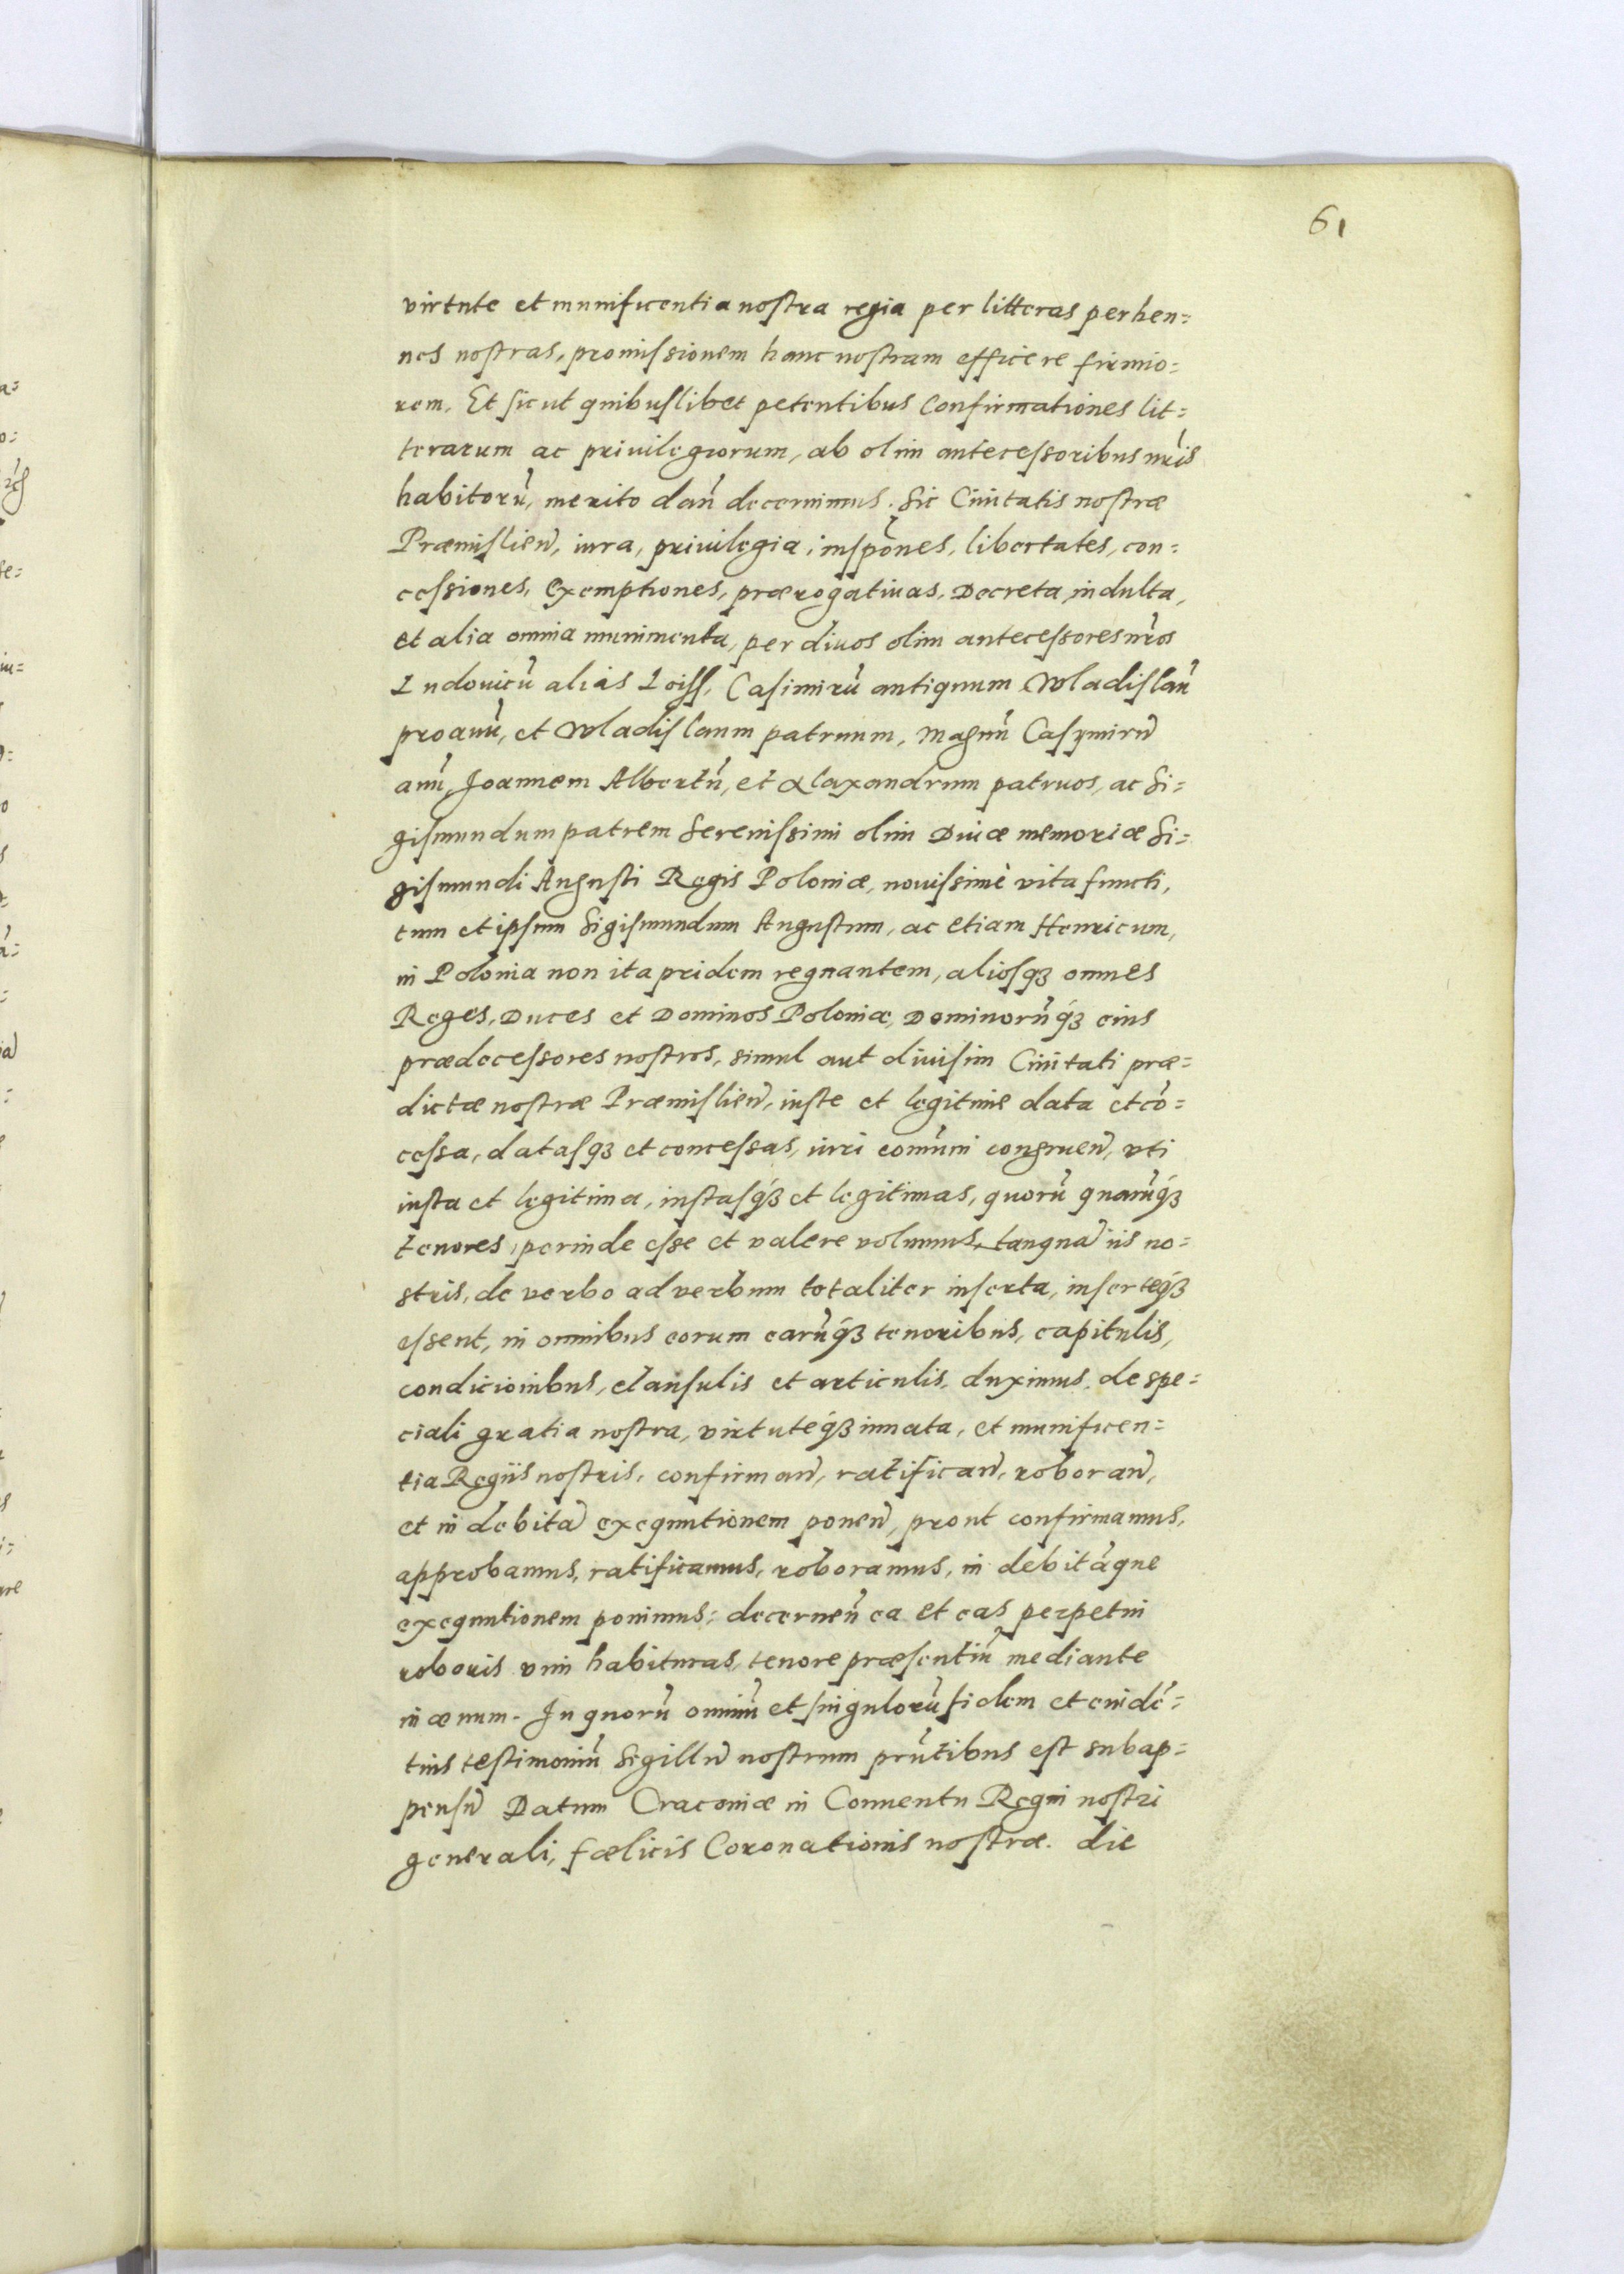 61
virtute et munificentia nostra regia per litteras perhen=
nes nostras, promissionem hanc nostram efficere firmio=
rem. Et sicut quibuslibet petentibus Confirmationes lit=
terarum ac privilegiorum, ab olim antecessoribus nr̃is
habitorũ, merito dañ decernimus. Sic Ciuitatis nostræ
Præmislieñ, iura, priuilegia, inspõnes, libertates, con=
cessiones, Exemptiones, prærogatiuas, Decreta, indulta,
et alia omnia munimenta, per diuos olim antecessores nr̃os
Ludouicũ alias Loiss, Casimirũ antiquum Wladislaũ
proauũ, et Wladislaum patruum, magnũ Casymirũ
auũ, Joannem Albertũ, et Alaxandrum patruos, ac Si=
gismundum patrem Serenissimi olim Diuæ memoriæ Si=
gismundi Augusti Regis Poloniæ, nouissimè vita functi,
tum et ipsum Sigismundum Augustum, ac etiam Henricum,
in Polonia non ita pridem regnantem, aliosqȝ omnes
Reges, Duces et Dominos Poloniæ, Dominorũqȝ eius
prædecessores nostros, simul aut diuisim Ciuitati præ=
dictæ nostræ Præmislieñ, iuste et legitime data et cõ=
cessa, datasqȝ et concessas, iuri comũni congrueñ, vti
iusta et legitima, iustasqȝ et legitimas, quorũ quarũqȝ
tenores, perinde esse et valere volumus, tanquã iis no=
stris, de verbo ad verbum totaliter inserta, inserteqȝ
essent, in omnibus eorum earũqȝ tenoribus, capitulis,
condicionibus, clausulis et articulis, duximus. de spe=
ciali gratia nostra, virtuteqȝ innata, et munificen=
tia Regiis nostris, confirmañ, ratificañ, roborañ,
et in debitã exequutionem poneñ, prout confirmamus,
approbamus, ratificamus, roboramus, in debitãque
exequutionem ponimus: decerneñ ea et eas perpetui
roboris vim habituras, tenore præsentiũ mediante
in æuum. In quorũ omniũ et singulorũ fidem et euidẽ=
tius testimoniũ Sigillũ nostrum prñtibus est subap=
pensũ Datum Cracouiæ in Conuentu Regni nostri
generali, fælicis Coronationis nostræ. die